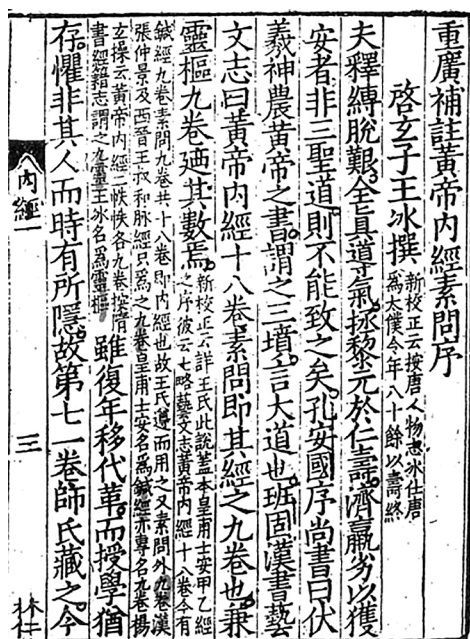 重廣補註黃帝内經素問序
啓玄子王冰撰
新校正云按唐人物志冰仕唐
爲太僕令年八十餘以壽終
夫釋縛脫艱全眞導氣拯黎元於仁壽濟羸劣以獲
安者非三聖道則不能致之矣孔安國序尚書曰伏
羲神農黃帝之書謂之三墳言大道也班固漢書藝
文志曰黃帝内經十八卷素問即其經之九卷也兼
靈樞九卷廼其數焉
新校正云詳王氏此說蓋本皇甫士安甲乙經
之序彼云七略藝文志黃帝内經十八卷今有
鍼經九卷素問九卷共十八卷即内經也故王氏遵而用之又素問外九卷漢
張仲景及西晉王叔和脉經只爲之九卷皇甫士安名爲鍼經亦專名九卷楊
玄操云黃帝内經二帙帙各九卷按隋
書經籍志謂之九靈王冰名爲靈樞
雖復年移代革而授學猶
存懼非其人而時有所隱故第七一卷師氏藏之今
内經一
三
林仁